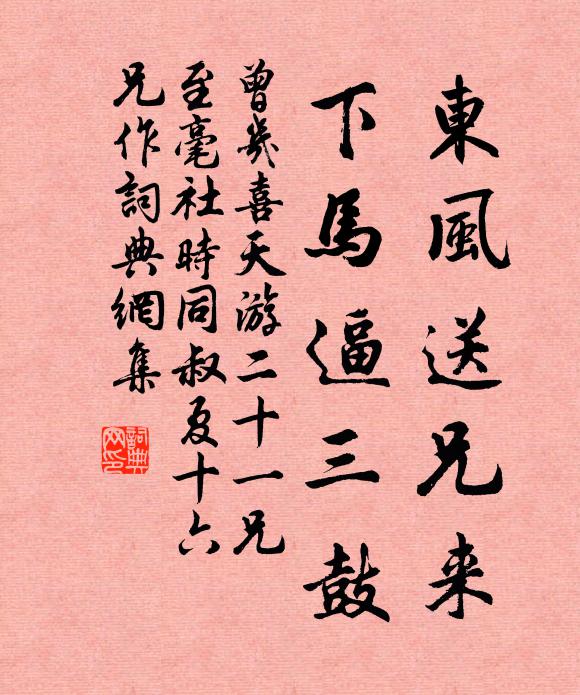 東風送兄来
下馬逼三鼓
曾幾喜天游二十一兄
至毫社時同叔夏十六
兄作詞典網集
詞典
网印